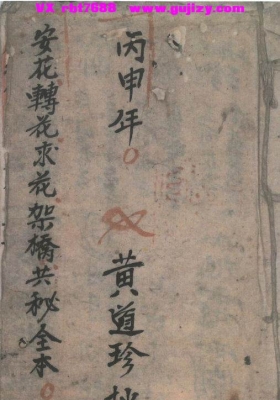 VX rht7688 www.gujizy.com
丙申年
黄道珍抄
安花轉花求花架橋共秘全本